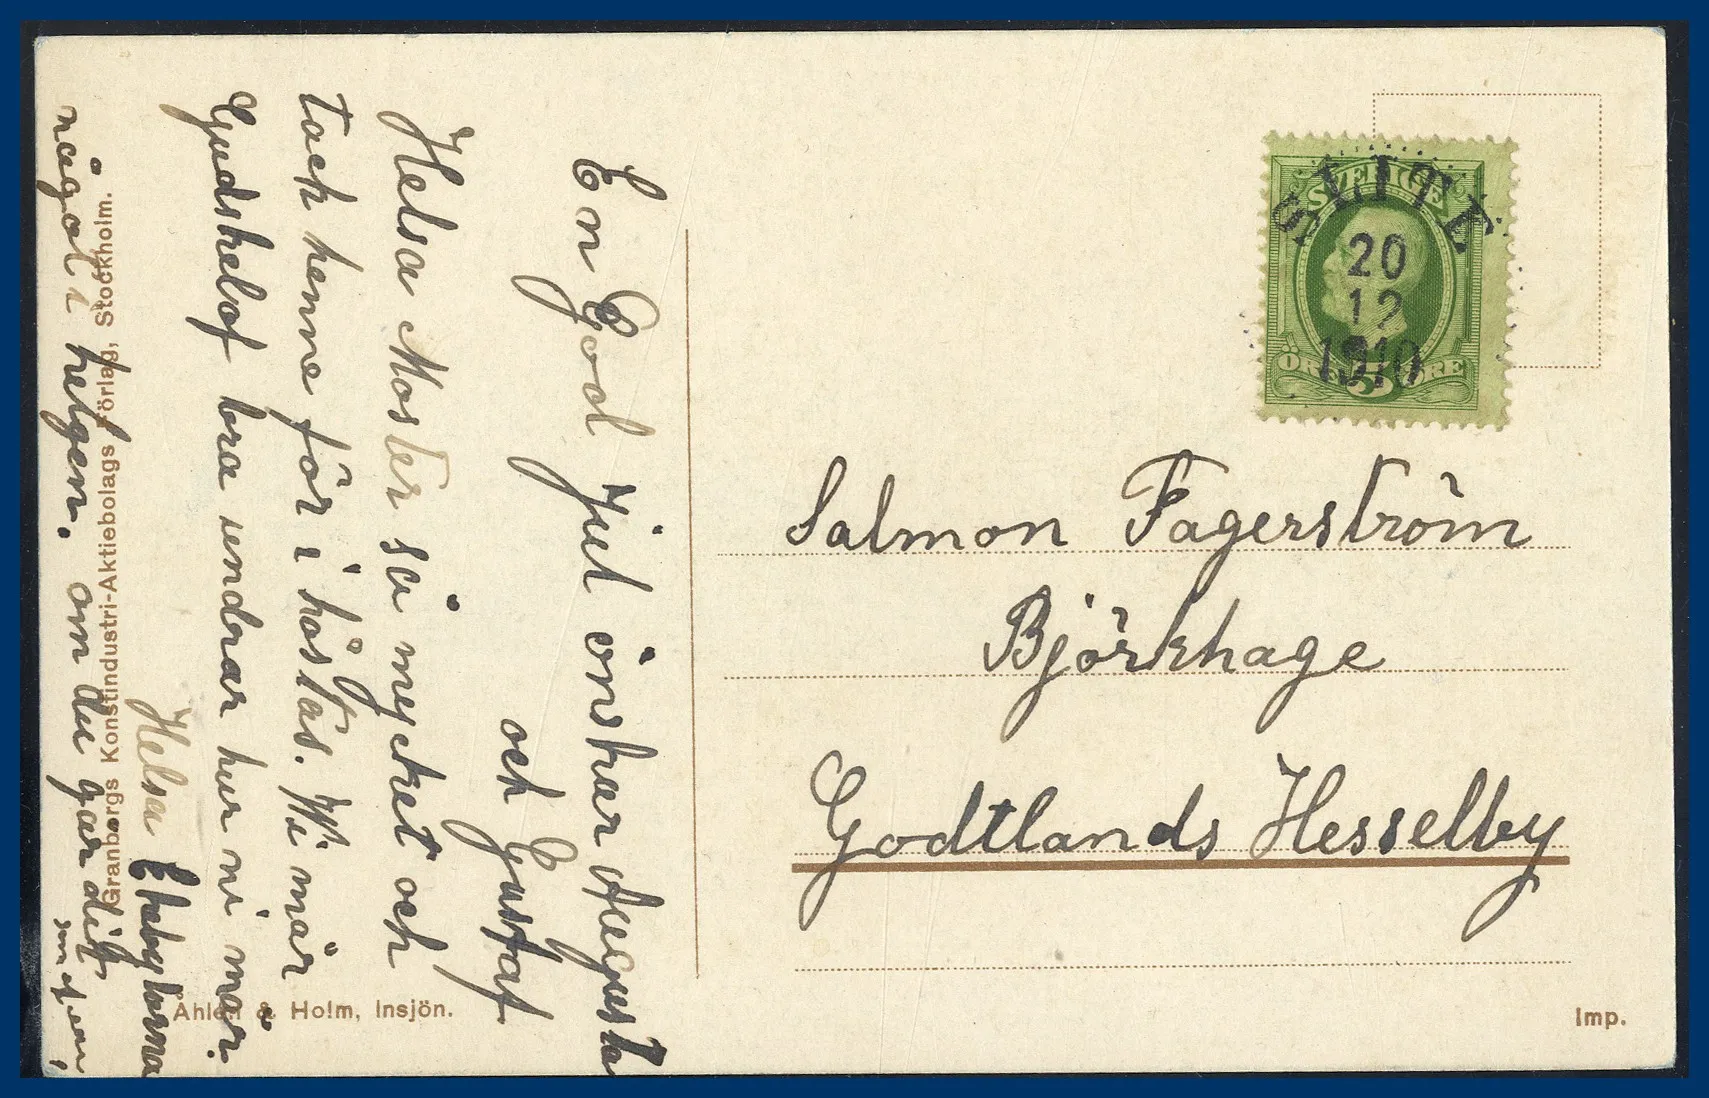 En God Jul önskar Augusta
och Gustaf
Helsa Moster så mycket och
tack henne för i höstas. Wi mår
Gudskelof bra undrar hur ni mår.
Helsa
något i helgen. om du går dit
Granbergs Konstindustri-Aktiebolags Förlag, Stockholm.
Åhlén & Holm, Insjön.
SVERIGE
ÖRE 5 ÖRE
SLITE
20
12
1910
Salmon Fagerström
Björkhage
Godtlands Hesselby
Imp.